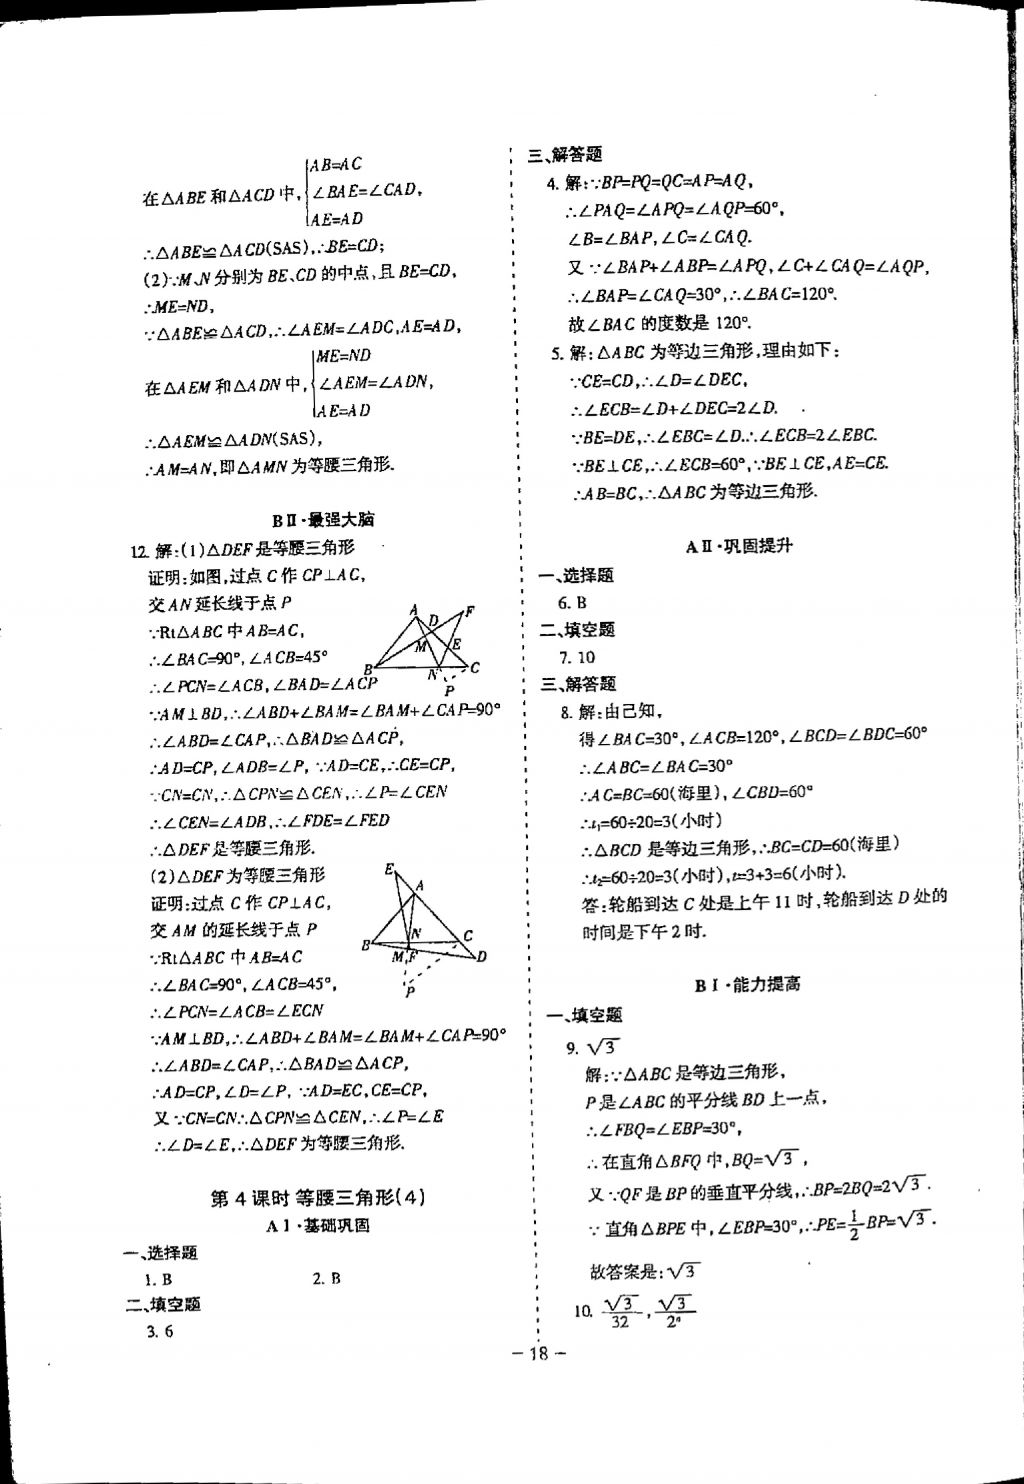 在△ABE和△ACD中,{AB=AC
∠BAE=∠CAD,
AE=AD
∴△ABE≌△ACD(SAS),∴BE=CD;
(2)∵M、N分别为BE、CD的中点,且BE=CD,
∴ME=ND,
∵△ABE≌△ACD,∴∠AEM=∠ADC,AE=AD,
在△AEM和△ADN中,{ME=ND
∠AEM=∠ADN,
AE=AD
∴△AEM≌△ADN(SAS),
∴AM=AN,即△AMN为等腰三角形.
BⅡ·最强大脑
12. 解:(1)△DEF是等腰三角形
证明:如图,过点C作CP⊥AC,
交AN延长线于点P
∵Rt△ABC中AB=AC,
∴∠BAC=90°,∠ACB=45°
∴∠PCN=∠ACB,∠BAD=∠ACP
∵AM⊥BD,∴∠ABD+∠BAM=∠BAM+∠CAP=90°
∴∠ABD=∠CAP,∴△BAD≌△ACP,
∴AD=CP,∠ADB=∠P,∵AD=CE,∴CE=CP,
∵CN=CN,∴△CPN≌△CEN,∴∠P=∠CEN
∴∠CEN=∠ADB,∴∠FDE=∠FED
∴△DEF是等腰三角形.
A D F M E B N C P
(2)△DEF为等腰三角形
证明:过点C作CP⊥AC,
交AM的延长线于点P
∵Rt△ABC中AB=AC
∴∠BAC=90°,∠ACB=45°,
∴∠PCN=∠ACB=∠ECN
∵AM⊥BD,∴∠ABD+∠BAM=∠BAM+∠CAP=90°
∴∠ABD=∠CAP,∴△BAD≌△ACP,
∴AD=CP,∠D=∠P,∵AD=EC,CE=CP,
又∵CN=CN∴△CPN≌△CEN,∴∠P=∠E
∴∠D=∠E,∴△DEF为等腰三角形.
E A N C B M,F D P
第4课时 等腰三角形(4)
AⅠ·基础巩固
一、选择题
1. B 2. B
二、填空题
3. 6
三、解答题
4. 解:∵BP=PQ=QC=AP=AQ,
∴∠PAQ=∠APQ=∠AQP=60°,
∠B=∠BAP,∠C=∠CAQ.
又∵∠BAP+∠ABP=∠APQ,∠C+∠CAQ=∠AQP,
∴∠BAP=∠CAQ=30°,∴∠BAC=120°.
故∠BAC的度数是120°.
5. 解:△ABC为等边三角形,理由如下:
∵CE=CD,∴∠D=∠DEC,
∴∠ECB=∠D+∠DEC=2∠D.
∵BE=DE,∴∠EBC=∠D.∴∠ECB=2∠EBC.
∵BE⊥CE,∴∠ECB=60°,∵BE⊥CE,AE=CE.
∴AB=BC,∴△ABC为等边三角形.
AⅡ·巩固提升
一、选择题
6. B
二、填空题
7. 10
三、解答题
8. 解:由己知,
得∠BAC=30°,∠ACB=120°,∠BCD=∠BDC=60°
∴∠ABC=∠BAC=30°
∴AC=BC=60(海里),∠CBD=60°
∴t₁=60÷20=3(小时)
∴△BCD是等边三角形,∴BC=CD=60(海里)
∴t₂=60÷20=3(小时),t=3+3=6(小时).
答:轮船到达C处是上午11时,轮船到达D处的
时间是下午2时.
BⅠ·能力提高
一、填空题
9. √3
解:∵△ABC是等边三角形,
P是∠ABC的平分线BD上一点,
∴∠FBQ=∠EBP=30°,
∴在直角△BFQ中,BQ=√3,
又∵QF是BP的垂直平分线,∴BP=2BQ=2√3.
∵直角△BPE中,∠EBP=30°,∴PE=1/2BP=√3.
故答案是:√3
10. √3/32,√3/2ⁿ
－18－